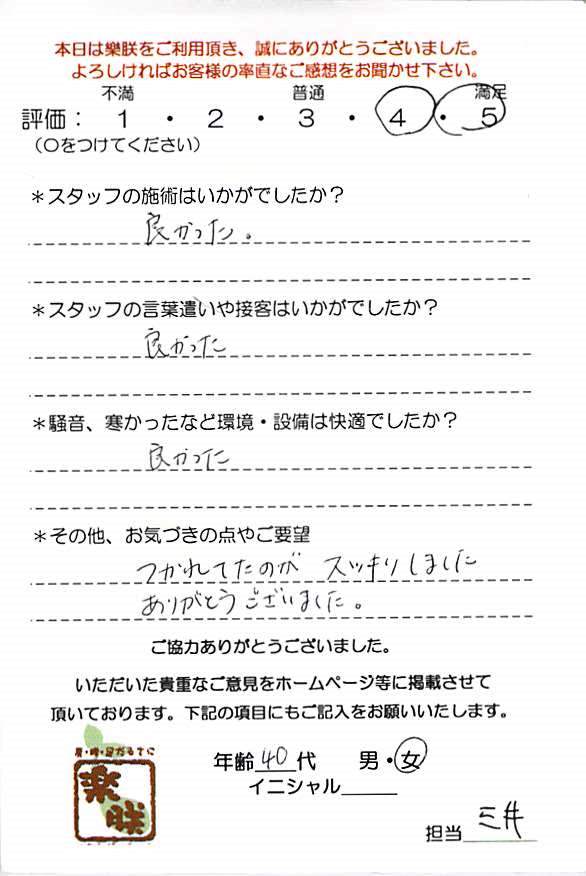 本日は樂朕をご利用頂き、誠にありがとうございました。
よろしければお客様の率直なご感想をお聞かせ下さい。
不満 普通 満足
評価: 1 ・ 2 ・ 3 ・ 4 ・ 5
（○をつけてください）
＊スタッフの施術はいかがでしたか？
良かった。
＊スタッフの言葉遣いや接客はいかがでしたか？
良かった
＊騒音、寒かったなど環境・設備は快適でしたか？
良かった
＊その他、お気づきの点やご要望
つかれてたのが スッキリしました
ありがとうございました。
ご協力ありがとうございました。
いただいた貴重なご意見をホームページ等に掲載させて
頂いております。下記の項目にもご記入をお願いいたします。
年齢40代 男・女
イニシャル
楽朕
担当 三井